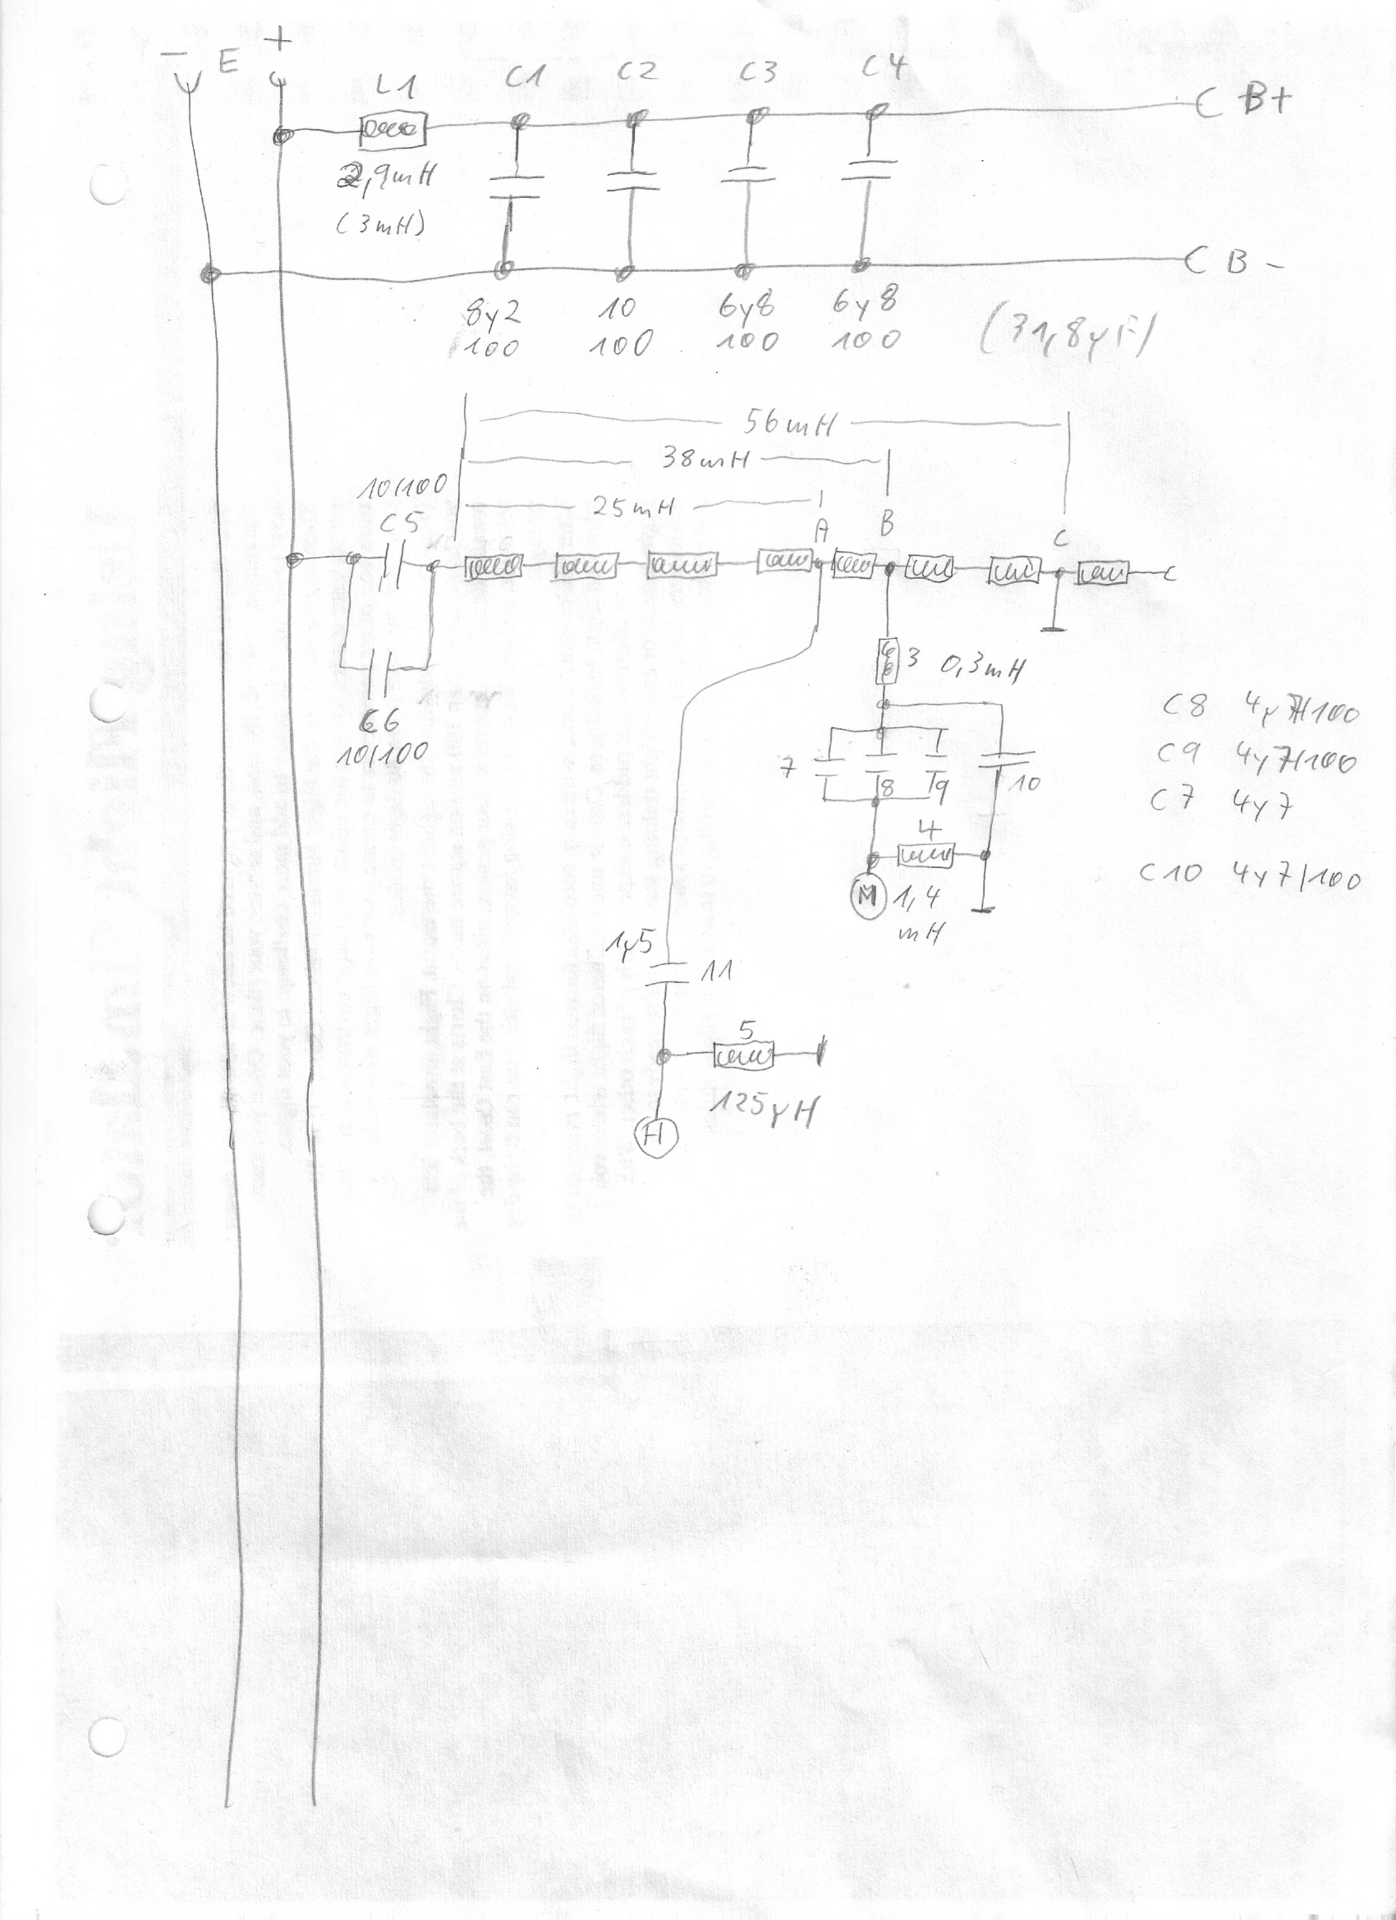 - E +
L1 C1 C2 C3 C4
B+
2,9mH
(3mH)
B -
8µ2 10 6µ8 6µ8 (31,8µF)
100 100 100 100
56mH
38mH
25mH
10/100
C5
A B C
3 0,3mH
C6
10/100
7 8 9 10
C8 4µ7/100
C9 4µ7/100
C7 4µ7
C10 4µ7/100
4
M 1,4
mH
1µ5 11
5
125µH
H